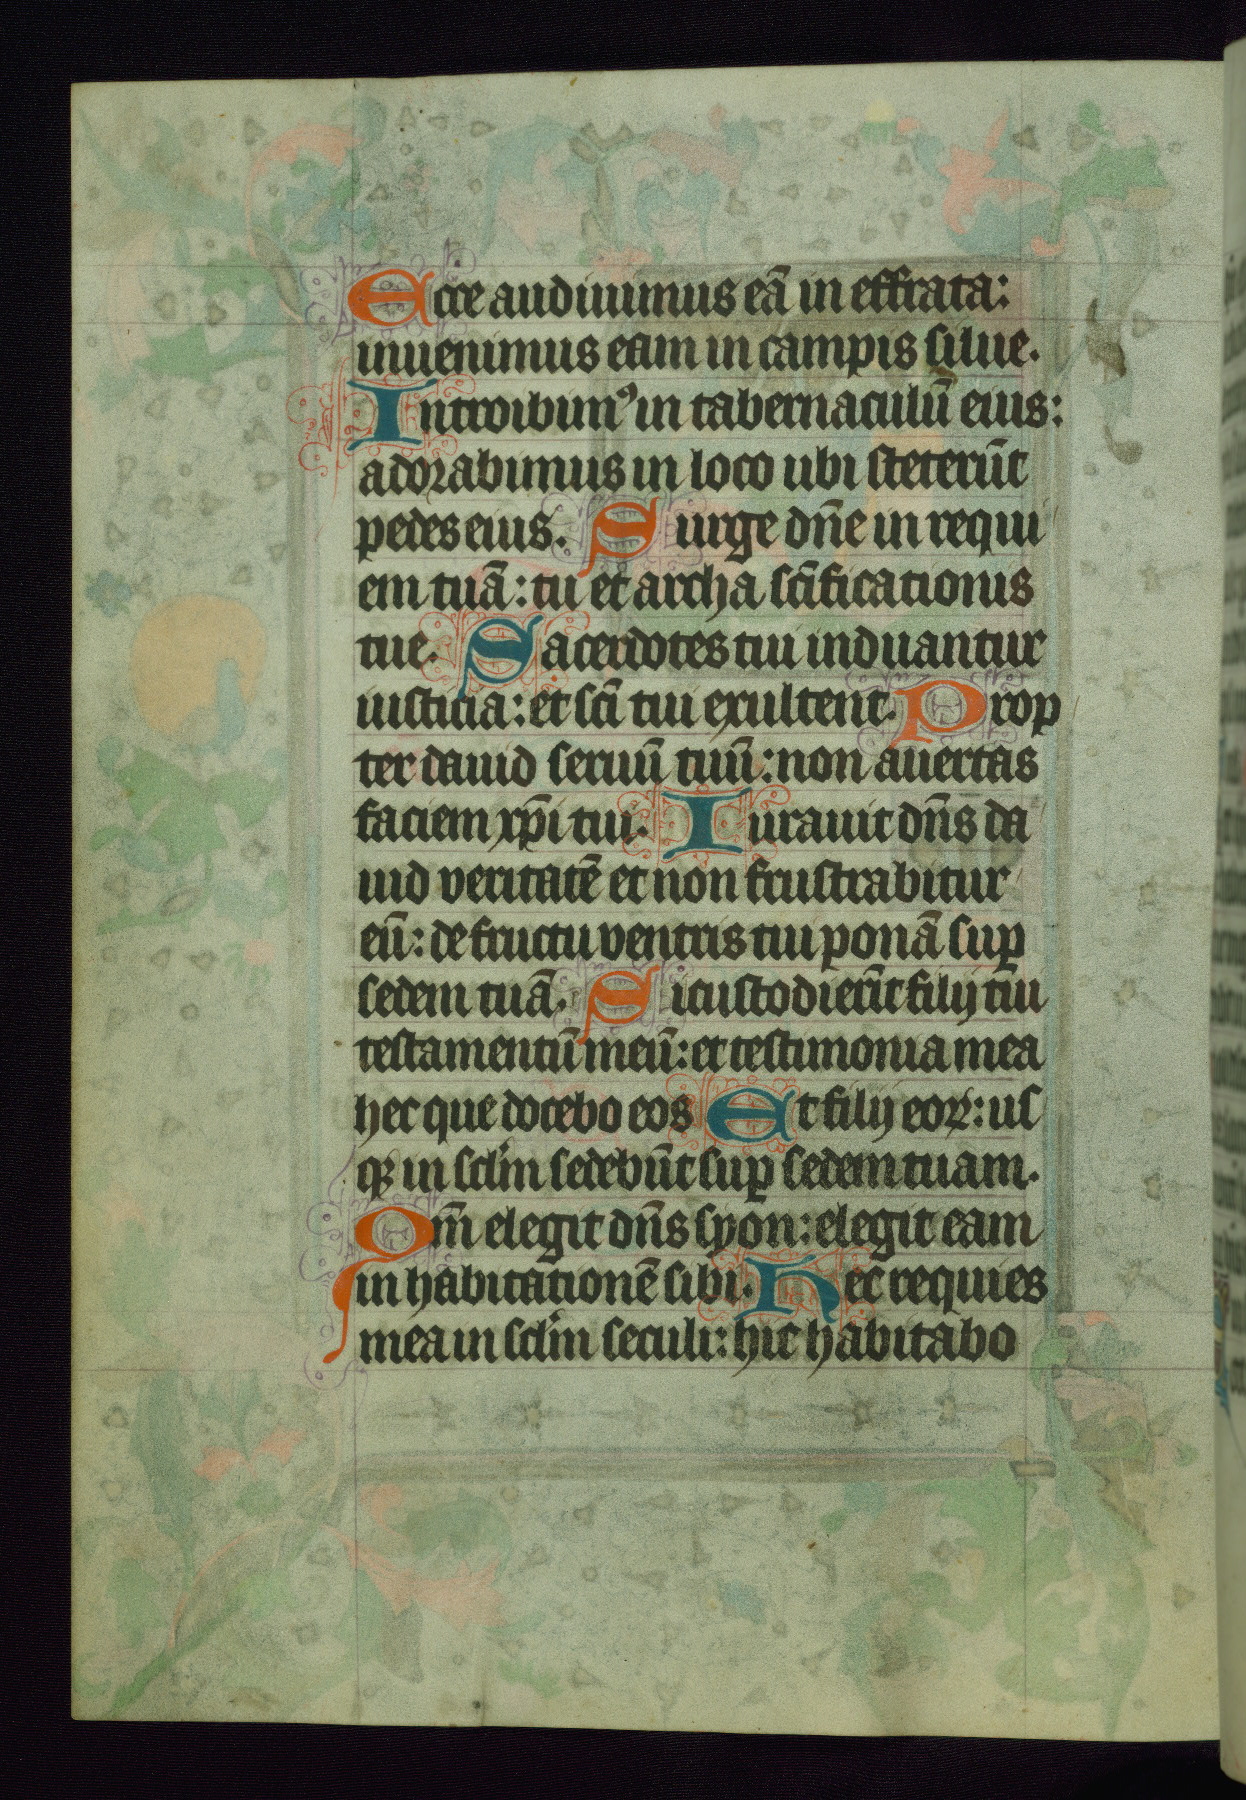 Ecce audiuimus eā in effrata:
inuenimus eam in campis silue.
Introibimꝰ in tabernaculū eius:
adorabimus in loco ubi steterūt
pedes eius. Surge dn̄e in requi
em tuā: tu et archa sc̄ificationis
tue. Sacerdotes tui induantur
iusticia: et sc̄i tui exultent. Prop
ter dauid seruū tuū: non auertas
faciem xp̄i tui. Iurauit dn̄s da
uid veritatē et non frustrabitur
eū: de fructu ventris tui ponā suꝑ
sedem tuā. Si custodierīt filij tui
testamentū meū: et testimonia mea
hec que docebo eos Et filij eoꝝ: us
qꝫ in sclm̄ sedebūt suꝑ sedem tuam.
Qm̄ elegit dn̄s syon: elegit eam
in habitationē sibi. Hec requies
mea in sclm̄ seculi: hic habitabo